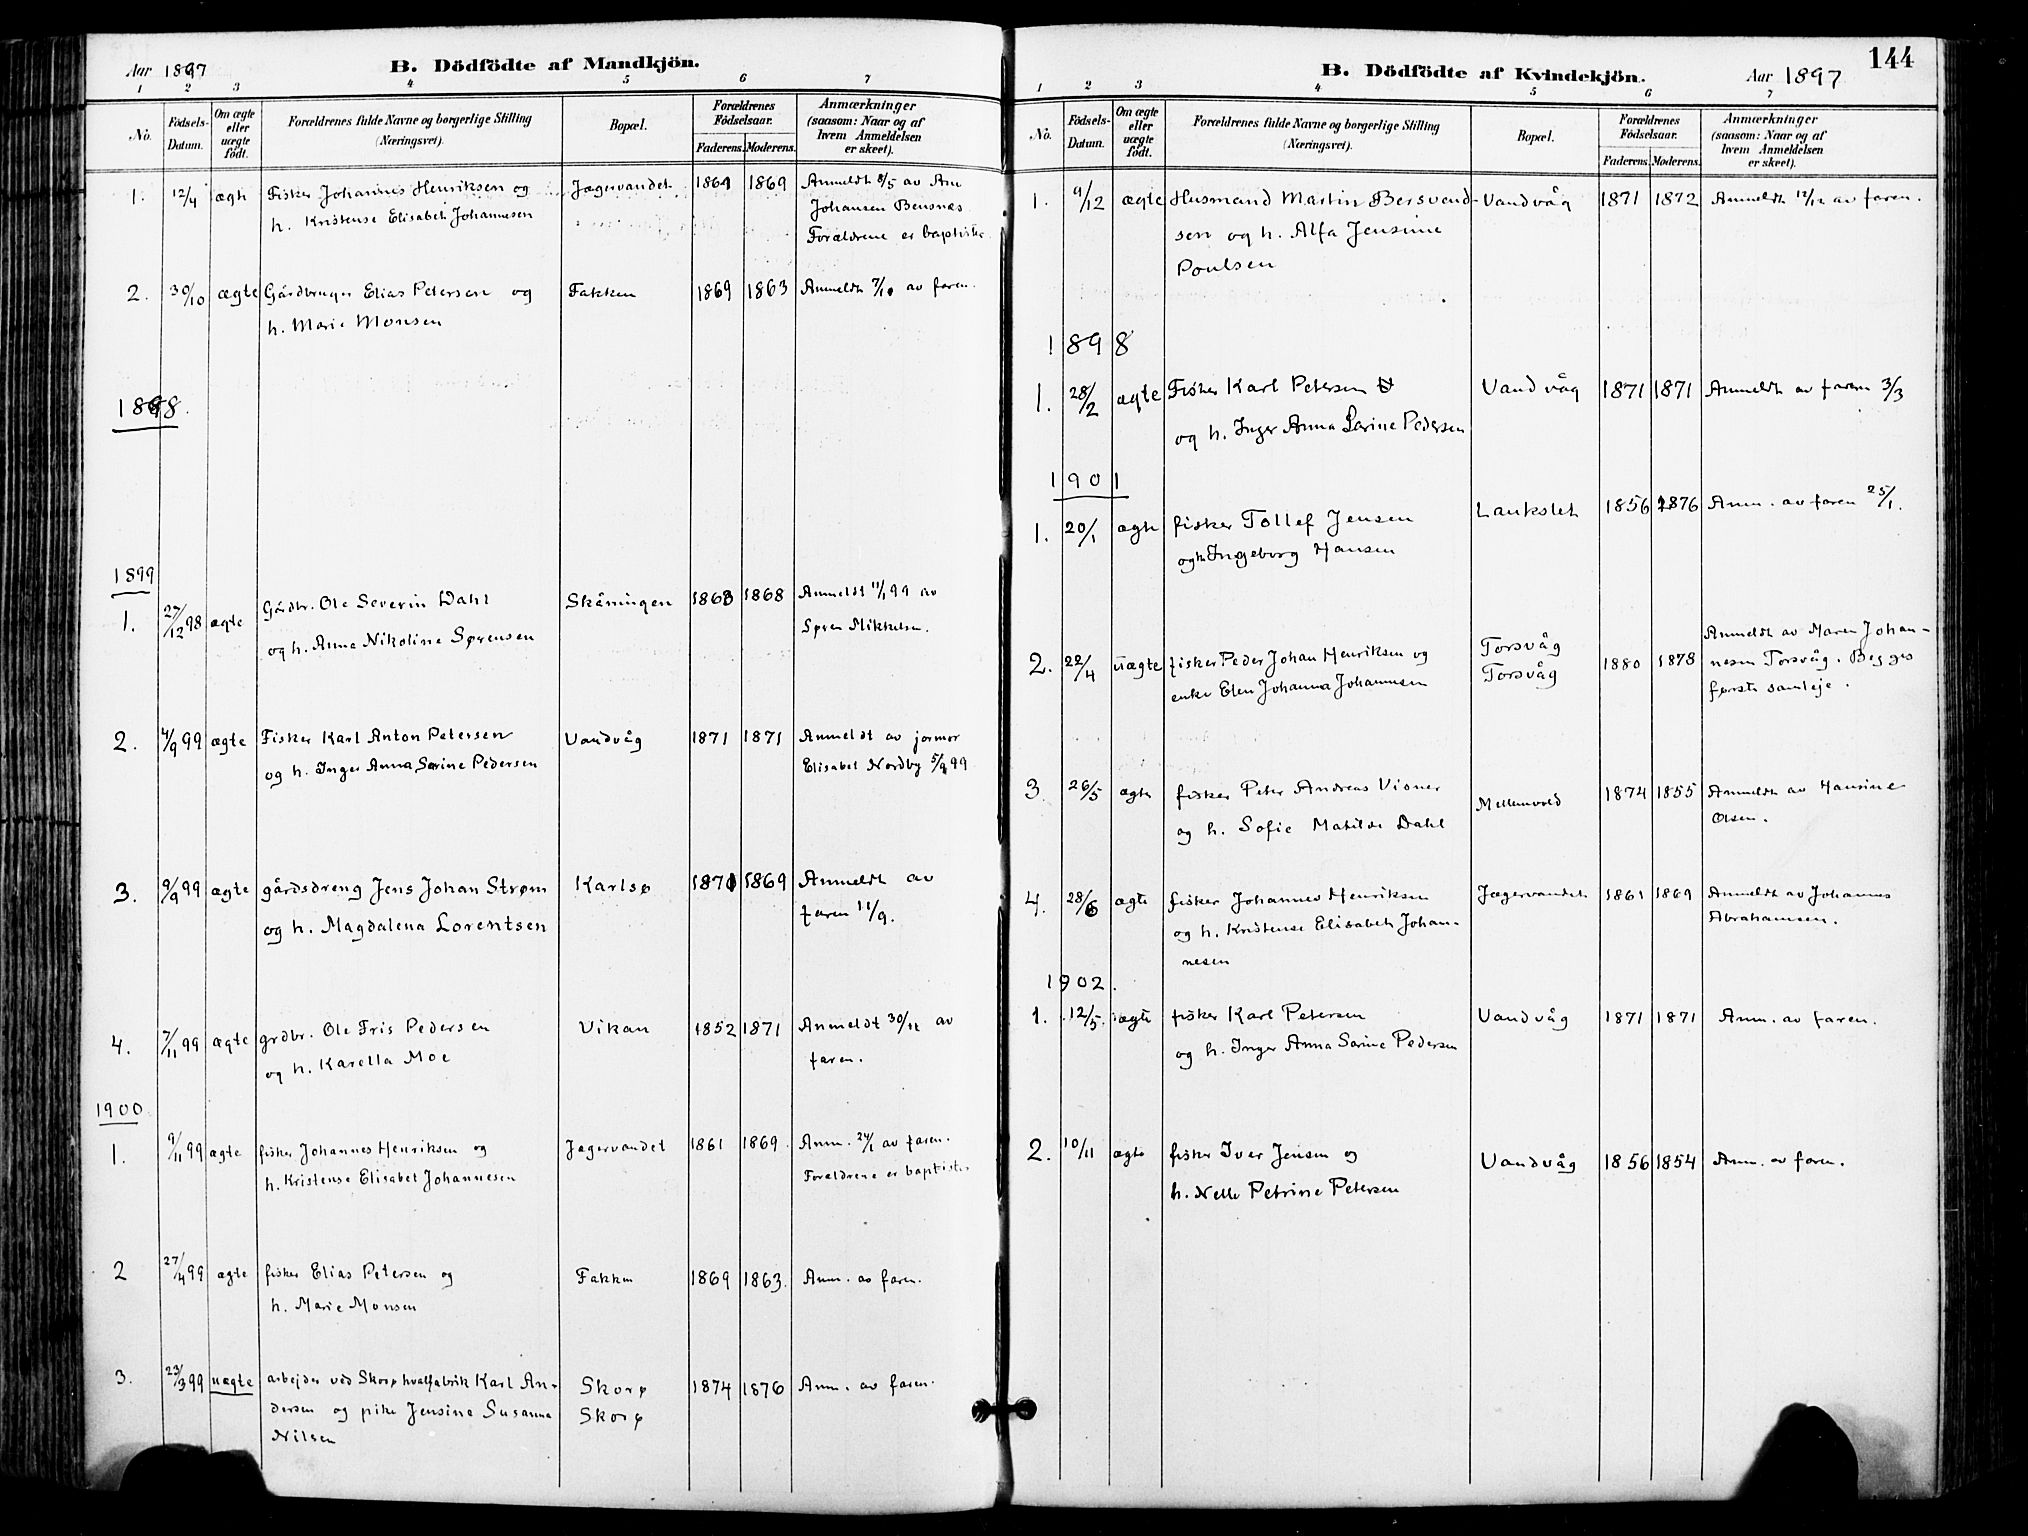 Aar 1897
B. Dödfödte af Mandkjön.
1 2 3 4 5 6 7
No.
Födsels-Datum.
Om ægte eller uægte födt.
Forældrenes fulde Navne og borgerlige Stilling (Næringsvei).
Bopæl.
Forældrenes Födselsaar.
Faderens. Moderens.
Anmærkninger (saasom: Naar og af hvem Anmeldelsen er skeet).
1. 12/4 ægte Fisker Johannes Henriksen og Jægervandet 1861 1869 Anmeldt 8/5 av Am
h. Kristense Elisabet Johannesen Johansen Bensnæs
Forældrene er baptister
2. 30/10 ægte Gårdbruger Elias Petersen og Fakken 1869 1863 Anmeldt 7/10 av faren.
h. Marie Monsen
1898.
1899
1. 27/12 98 ægte Gårdbr. Ole Severin Dahl Skåningen 1868 1868 Anmeldt 11/1 99 av
og h. Anna Nikoline Sørensen Søren Mikkelsen.
2. 4/9 99 ægte Fisker Karl Anton Petersen Vandvåg 1871 1871 Anmeldt av jormor
og h. Inger Anna Sørine Pedersen Elisabet Nordby 5/9 99
3. 9/9 99 ægte gårdsdreng Jens Johan Strøm Karlsø 1870 1869 Anmeldt av
og h. Magdalena Lorentsen faren 11/9.
4. 7/11 99 ægte grdbr. Ole Fris Pedersen Vikan 1852 1871 Anmeldt 30/11 av
og h. Karella Moe faren.
1900
1. 9/11 99 ægte fisker Johannes Henriksen og Jægervandet 1861 1869. Anm. 24/1 av faren.
h. Kristense Elisabet Johannesen Forældrene er baptister
2 27/4 99 ægte fisker Elias Petersen og Fakken 1869 1863. Anm. av faren.
h. Marie Monsen
3. 23/3 99 uægte arbejder ved Skorø hvalfabrik Karl An- Skorø 1874 1876 Anm. av faren.
dersen og pike Jensine Susanna Skorø
Nilsen
144
B. Dödfödte af Kvindekjön.
Aar 1897
1 2 3 4 5 6 7
No.
Födsels-Datum.
Om ægte eller uægte födt.
Forældrenes fulde Navne og borgerlige Stilling (Næringsvei).
Bopæl.
Forældrenes Födselsaar.
Faderens. Moderens.
Anmærkninger (saasom: Naar og af hvem Anmeldelsen er skeet).
1. 9/12 ægte Husmand Martin Bersvend- Vandvåg 1871 1872 Anmeldt 12/12 av faren.
sen og h. Alfa Jensine
Poulsen
1898
1. 28/2 ægte Fisker Karl Petersen Vandvåg 1871 1871 Anmeldt av faren 3/3
og h. Inger Anna Sørine Pedersen
1901
1. 20/1 ægte fisker Tollef Jensen Laukslet 1856 1876 Anm. av faren 25/1.
og h. Ingeborg Hansen
2. 22/4 uægte fisker Peder Johan Henriksen og Torsvåg 1880 1878 Anmeldt av Maren Johan-
enke Elen Johanna Johannesen Torsvåg nesen Torsvåg. Begges
første samleje.
3 26/5 ægte fisker Peter Andreas Visner Mellemvold 1874 1855 Anmeldt av Hansine
og h. Sofie Matilde Dahl Olsen.
4. 28/6 ægte fisker Johannes Henriksen Jægervandet 1861 1869 Anmeldt av Johannes
og h. Kristense Elisabeth Johan- Abrahamsen.
nesen
1902.
1. 12/5. ægte fisker Karl Petersen Vandvåg 1871 1871 Anm. av faren.
og h. Inger Anna Sørine Pedersen
2. 10/11 ægte fisker Iver Jensen og Vandvåg 1856 1854 Anm. av faren.
h. Nelle Petrine Petersen